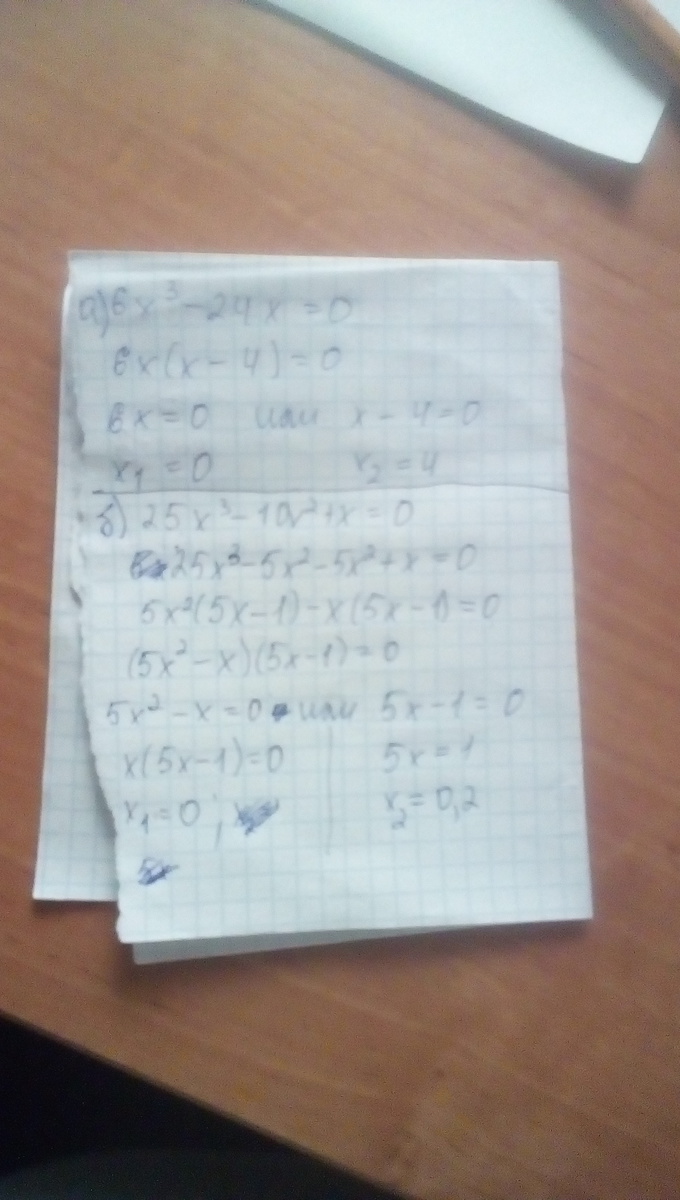 а) 6x³ - 24x = 0
6x(x - 4) = 0
6x = 0 или x - 4 = 0
x₁ = 0 x₂ = 4
б) 25x³ - 10x² + x = 0
25x³ - 5x² - 5x² + x = 0
5x²(5x - 1) - x(5x - 1) = 0
(5x² - x)(5x - 1) = 0
5x² - x = 0 или 5x - 1 = 0
x(5x - 1) = 0 5x = 1
x₁ = 0 ; x₂ = 0,2